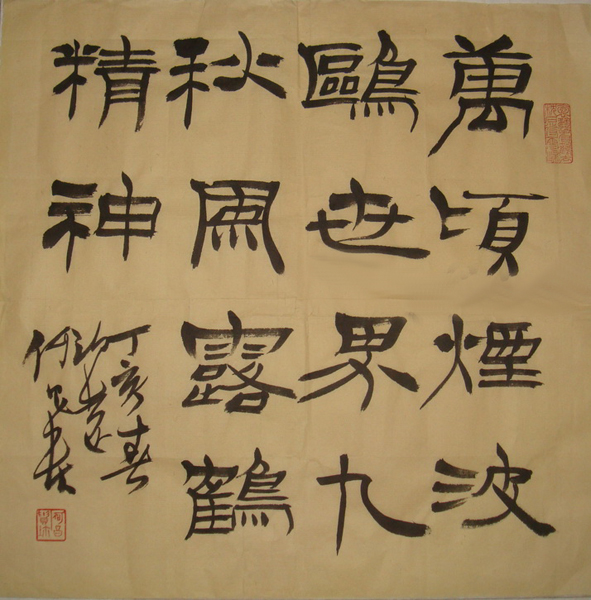 萬頃煙波
鷗世界九
秋風露鶴
精神
丁亥春